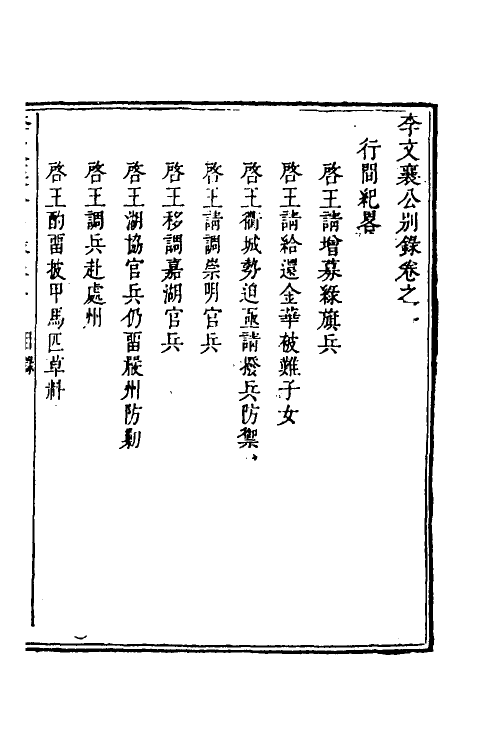 李文襄公别錄卷之一
行間紀畧
啓王請增募綠旗兵
啓王請給還金華被難子女
啓王衢城勢迫亟請撥兵防禦
啓王請調崇明官兵
啓王移調嘉湖官兵
啓王湖協官兵仍畱嚴州防勦
啓王調兵赴處州
啓王酌畱披甲馬匹草料
目錄